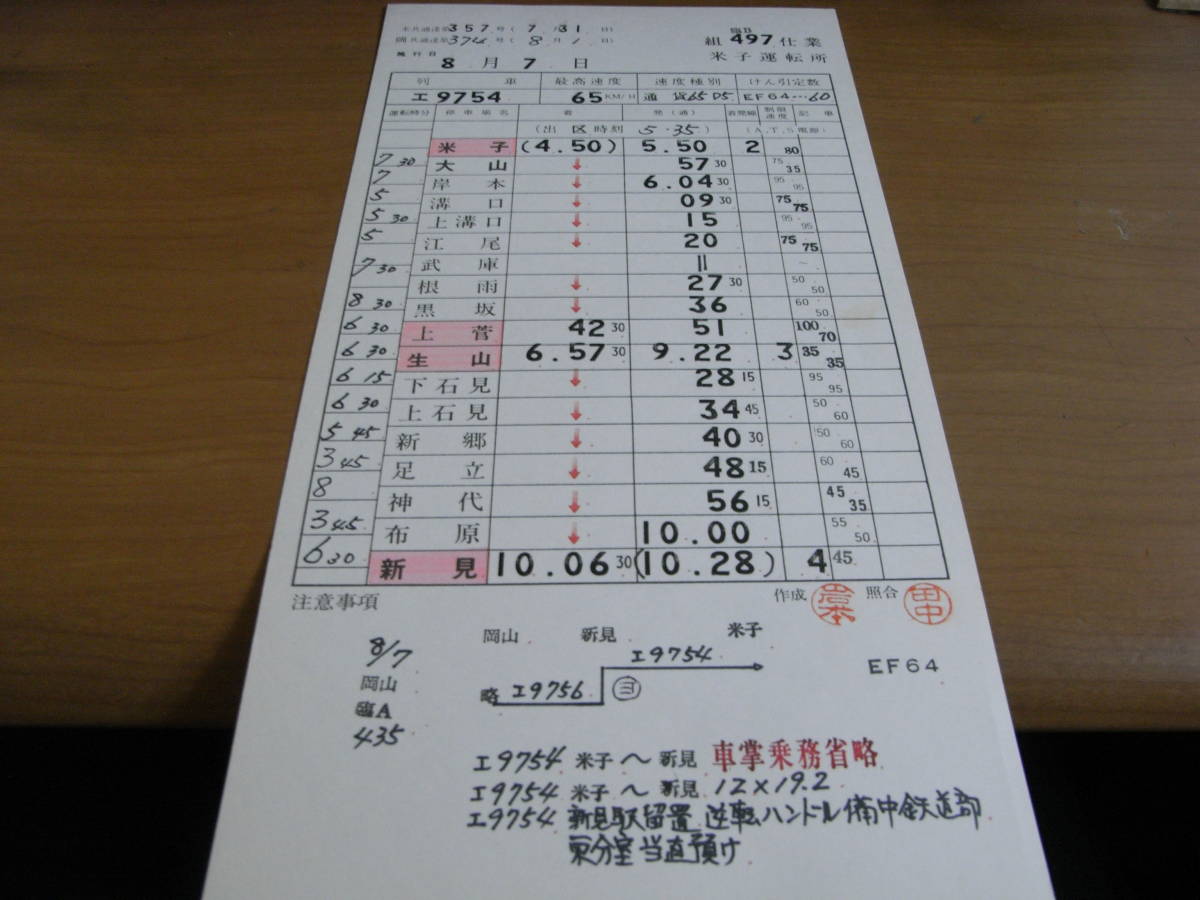 米共通達第357号(7月31日)
岡共通達第374号(8月1日)
施行日
8月7日
臨B
組497仕業
米子運転所
列車 最高速度 速度種別 けん引定数
エ9754 65KM/H 通貨65D5 EF64…60
運転時分 停車場名 着 発(通) 着発線 制限速度 記事
(出区時刻 5.35) (A,T,S電源)
米子 (4.50) 5.50 2 80
7 30 大山 ↓ 57 30 75 35
7 岸本 ↓ 6.04 30 95 95
5 溝口 ↓ 09 30 75 75
5 30 上溝口 ↓ 15 95 95
5 江尾 ↓ 20 75 75
武庫 ||
7 30 根雨 ↓ 27 30 50 50
8 30 黒坂 ↓ 36 60 50
6 30 上菅 42 30 51 100 70
6 30 生山 6.57 30 9.22 3 35 35
6 15 下石見 ↓ 28 15 95 95
6 30 上石見 ↓ 34 45 50 60
5 45 新郷 ↓ 40 30 50 60
3 45 足立 ↓ 48 15 60 45
8 神代 ↓ 56 15 45 35
3 45 布原 ↓ 10.00 55 50
6 30 新見 10.06 30 (10.28) 4 45
注意事項 作成 照合 田中
岡山 新見 米子
8/7 エ9754 EF64
岡山 略 エ9756 ヨ
臨A
435
エ9754 米子〜新見 車掌乗務省略
エ9754 米子〜新見 12×19.2
エ9754 新見駅留置 逆転ハンドル備中鉄道部
東分室当直預け